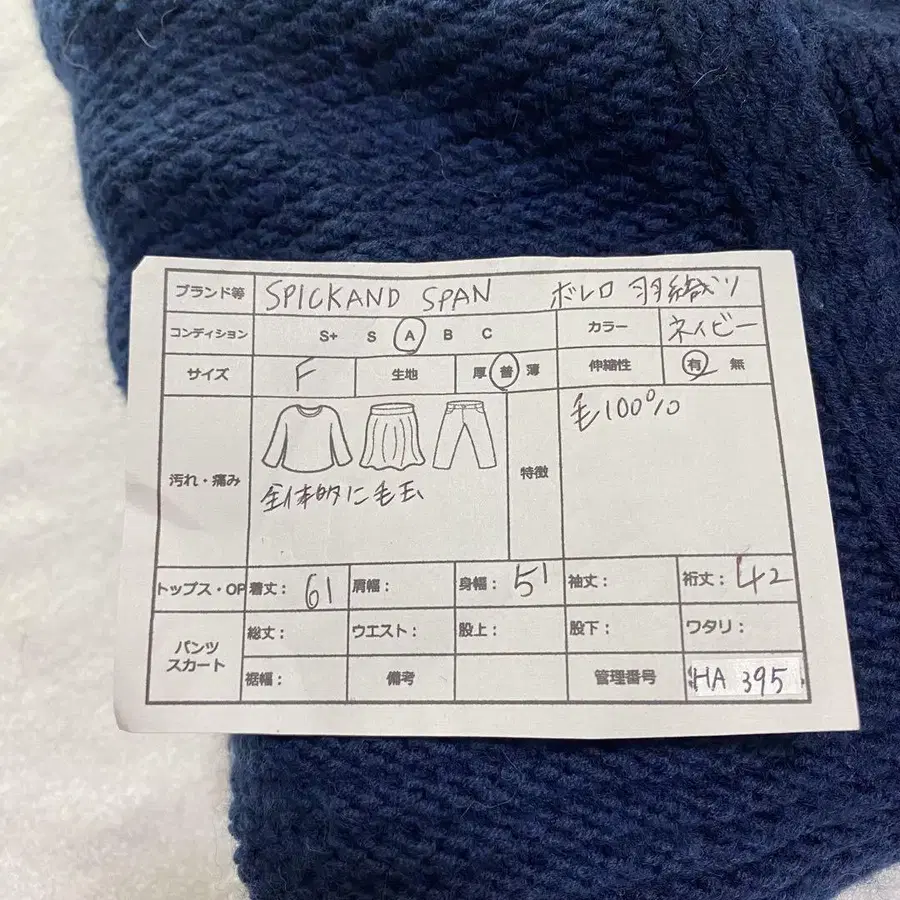 ブランド等 SPICKAND SPAN ボレロ 羽織り
コンディション S+ S A B C カラー ネイビー
サイズ F 生地 厚 普 薄 伸縮性 有 無
汚れ・痛み 全体的に毛玉 特徴 毛100%
トップス・OP 着丈: 61 肩幅: 身幅: 51 袖丈: 裄丈: 42
パンツ スカート 総丈: ウエスト: 股上: 股下: ワタリ:
裾幅: 備考 管理番号 HA 395